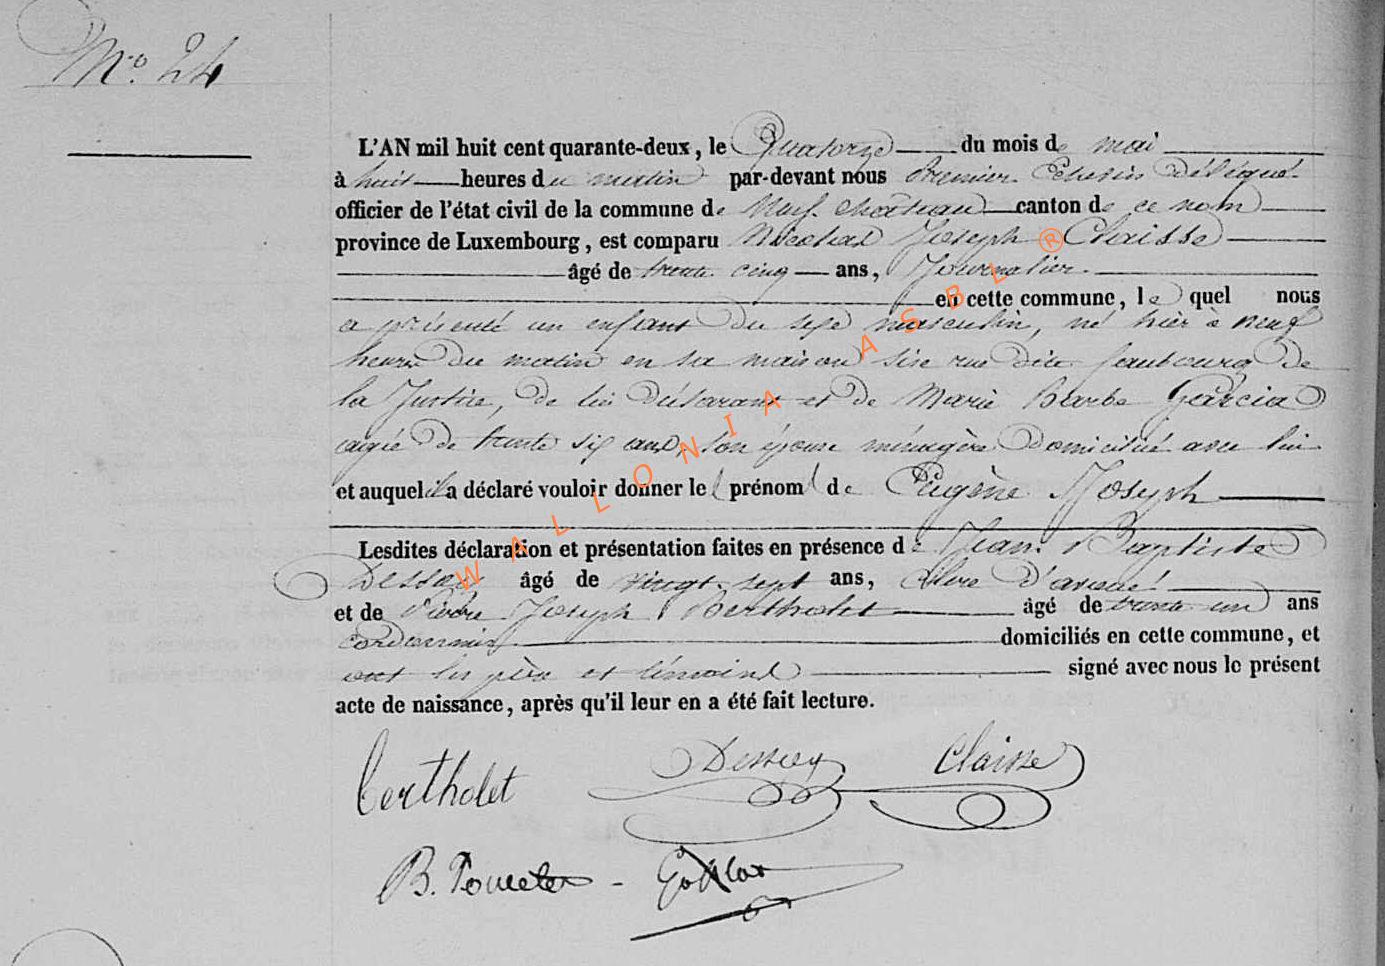 No. 24
L'AN mil huit cent quarante-deux, le Quatorze du mois de mai
à huit heures du matin par-devant nous Premier Echevin délégué
officier de l'état civil de la commune de Neufchâteau canton de ce nom
province de Luxembourg, est comparu Nicolas Joseph Claisse
âgé de trente cinq ans, Journalier
en cette commune, lequel nous
a présenté un enfant du sexe masculin, né hier à neuf
heures du matin en sa maison sise rue dite faubourg de
la Justice, de lui déclarant et de Marie Barbe Garcia
agée de trente six ans, son épouse ménagère domiciliée avec lui
et auquel il a déclaré vouloir donner le prénom de Eugène Joseph
Lesdites déclaration et présentation faites en présence de Jean Baptiste
âgé de vingt sept ans, Clerc d'avoué
et de Pierre Joseph Bertholet âgé de trente un ans
cordonnier domiciliés en cette commune, et
ont les père et témoins signé avec nous le présent
acte de naissance, après qu'il leur en a été fait lecture.
Bertholet Claisse
WALLONIA ASBL ®